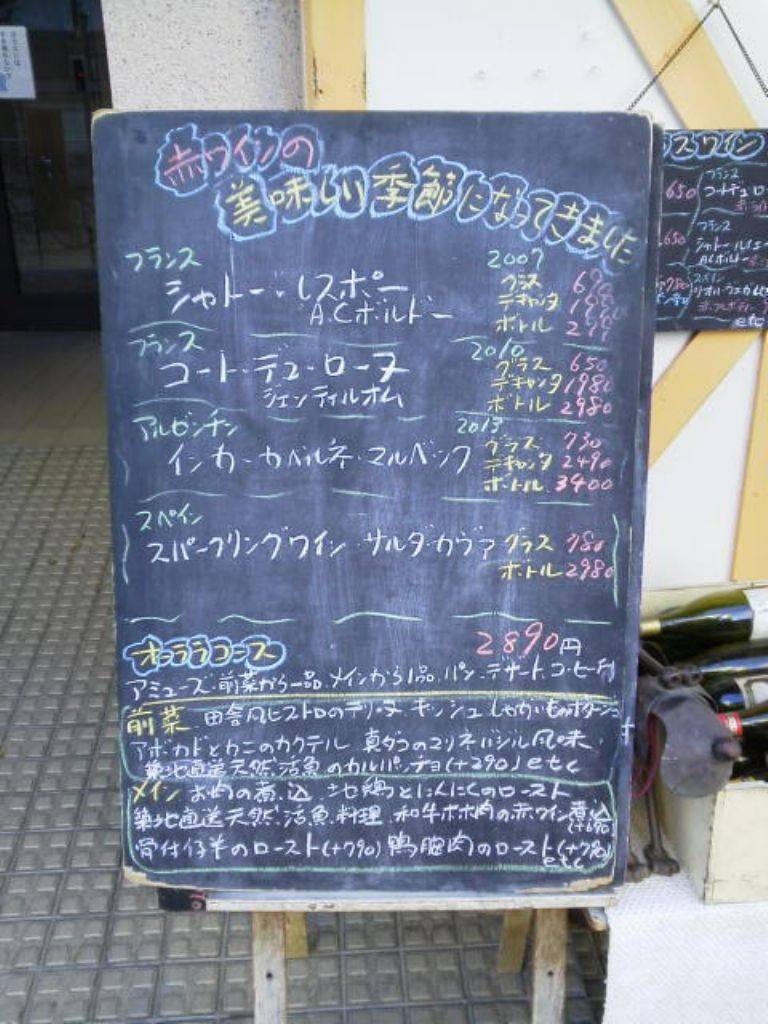 赤ワインの
美味しい季節になってきました
フランス 2007
シャトー・レスポー グラス 690
A.Cボルドー デキャンタ
ボトル
フランス 2010
コート・デュ・ローヌ グラス 650
デキャンタ 1980
ジェンティルオム ボトル 2980
アルゼンチン 2013
インカ・カベルネ・マルベック グラス 730
デキャンタ 2490
ボトル 3400
スペイン
スパークリングワイン・サルダ・カヴァ グラス 780
ボトル 2980
コース 2890円
アミューズ・前菜から一品・メインから1品・パン・デザート・コーヒー付
前菜 田舎風ビストロのテリーヌ キッシュ
アボカドとカニのカクテル 真ダコのマリネバジル風味・
築地直送天然・活魚のカルパッチョ(+290) etc
メイン お肉の煮込 地鶏とにんにくのロースト
築地直送天然・活魚料理 和牛ホホ肉の赤ワイン煮込
(+690)
骨付仔羊のロースト(+790) 鴨胸肉のロースト(+790)
etc
スワイン
フランス
650 コートデュロー
フランス
650
ACボルドー
スペイン
etc